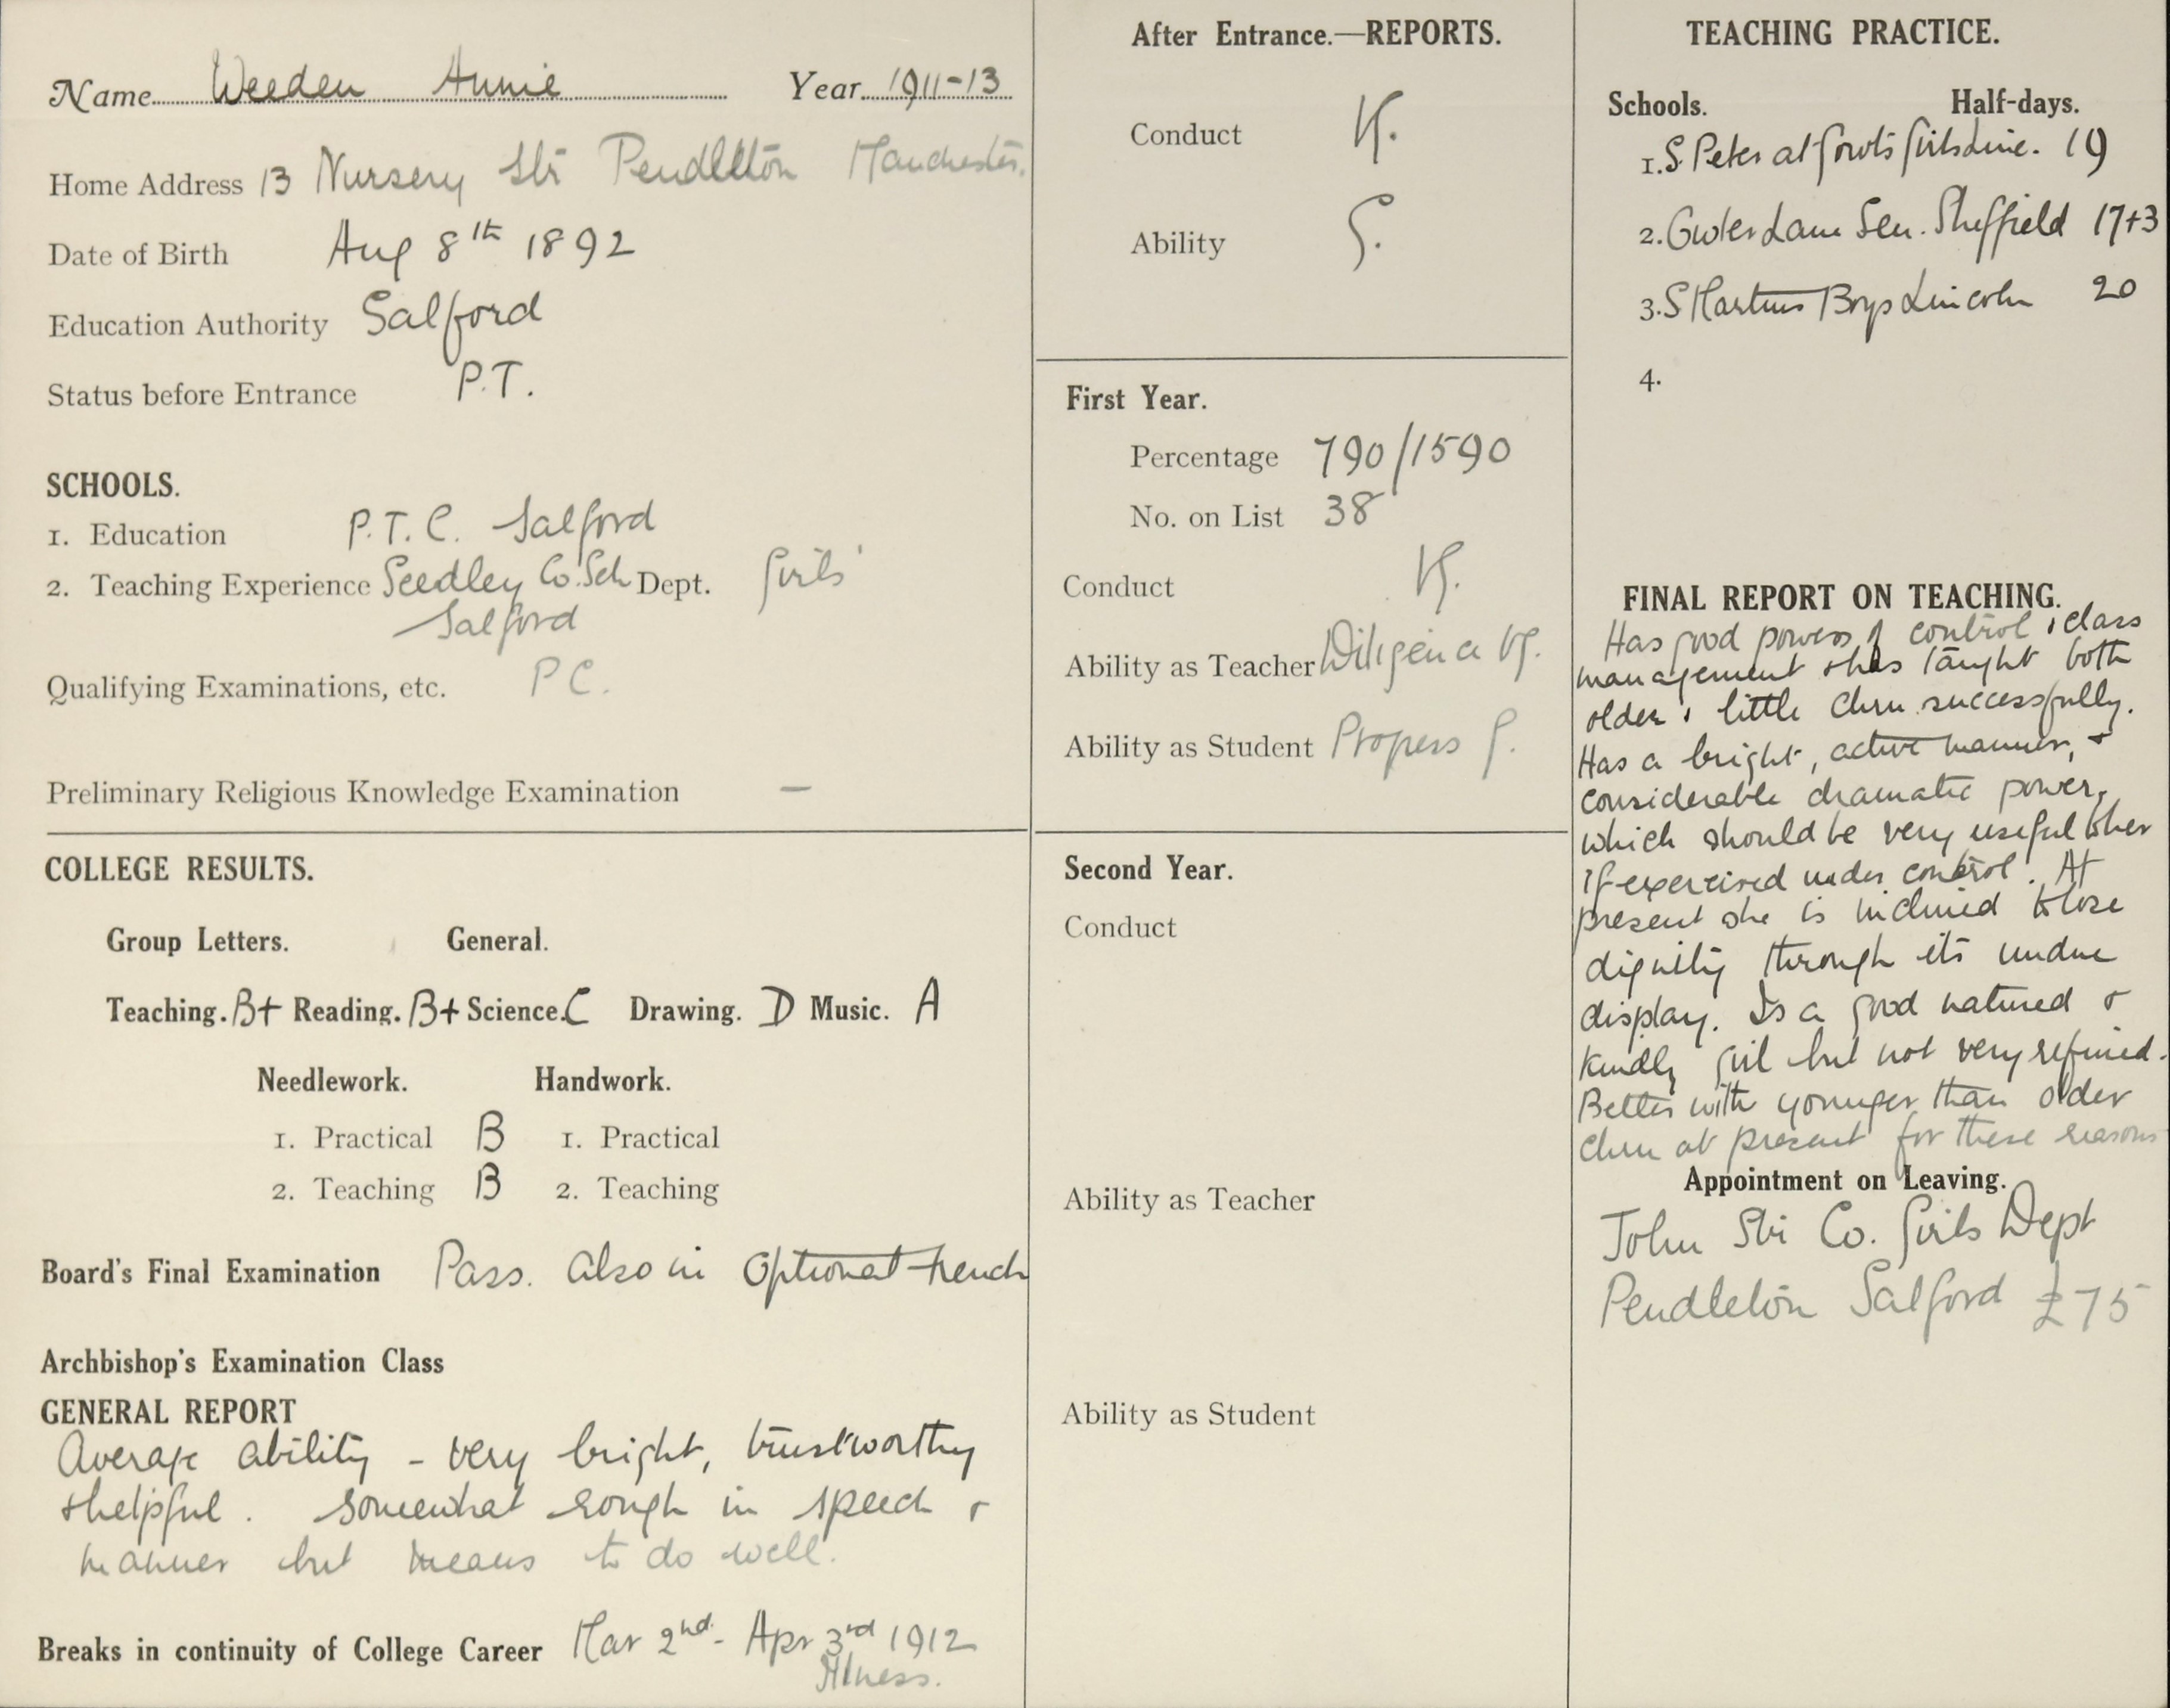 Name Weeden Annie Year 1911-13
Home Address 13 Nursery Str Pendleton Manchester.
Date of Birth Aug 8th 1892
Education Authority Salford
Status before Entrance P.T.
SCHOOLS.
1. Education P.T.C. Salford
2. Teaching Experience Seedley Co. Sch Dept. Girls'
Salford
Qualifying Examinations, etc. P C.
Preliminary Religious Knowledge Examination —
COLLEGE RESULTS.
Group Letters. General.
Teaching. B+ Reading. B+ Science. C Drawing. D Music. A
Needlework. Handwork.
1. Practical B 1. Practical
2. Teaching B 2. Teaching
Board's Final Examination Pass. Also in Optional French
Archbishop's Examination Class
GENERAL REPORT
Average ability - very bright, trustworthy
& helpful. Somewhat rough in speech &
manner but means to do well.
Breaks in continuity of College Career Mar 2nd - Apr 3rd 1912
Illness.
After Entrance.—REPORTS.
Conduct
Ability G.
First Year.
Percentage 790/1590
No. on List 38
Conduct
Ability as Teacher Diligence
Ability as Student Progress G.
Second Year.
Conduct
Ability as Teacher
Ability as Student
TEACHING PRACTICE.
Schools. Half-days.
1. S. Peter at Gowts Girls Linc. 19
2. Lane Sen. Sheffield 17+3
3. S Martins Boys Lincoln 20
4.
FINAL REPORT ON TEACHING.
Has good powers of control & class
management & has taught both
older & little chrn successfully.
Has a bright, active manner, &
considerable dramatic power,
which should be very useful to her
if exercised under control. At
present she is inclined to lose
dignity through its undue
display. Is a good natured &
kindly girl but not very refined.
Better with younger than older
chrn at present for these reasons
Appointment on Leaving.
John Str Co. Girls Dept
Pendleton Salford £75